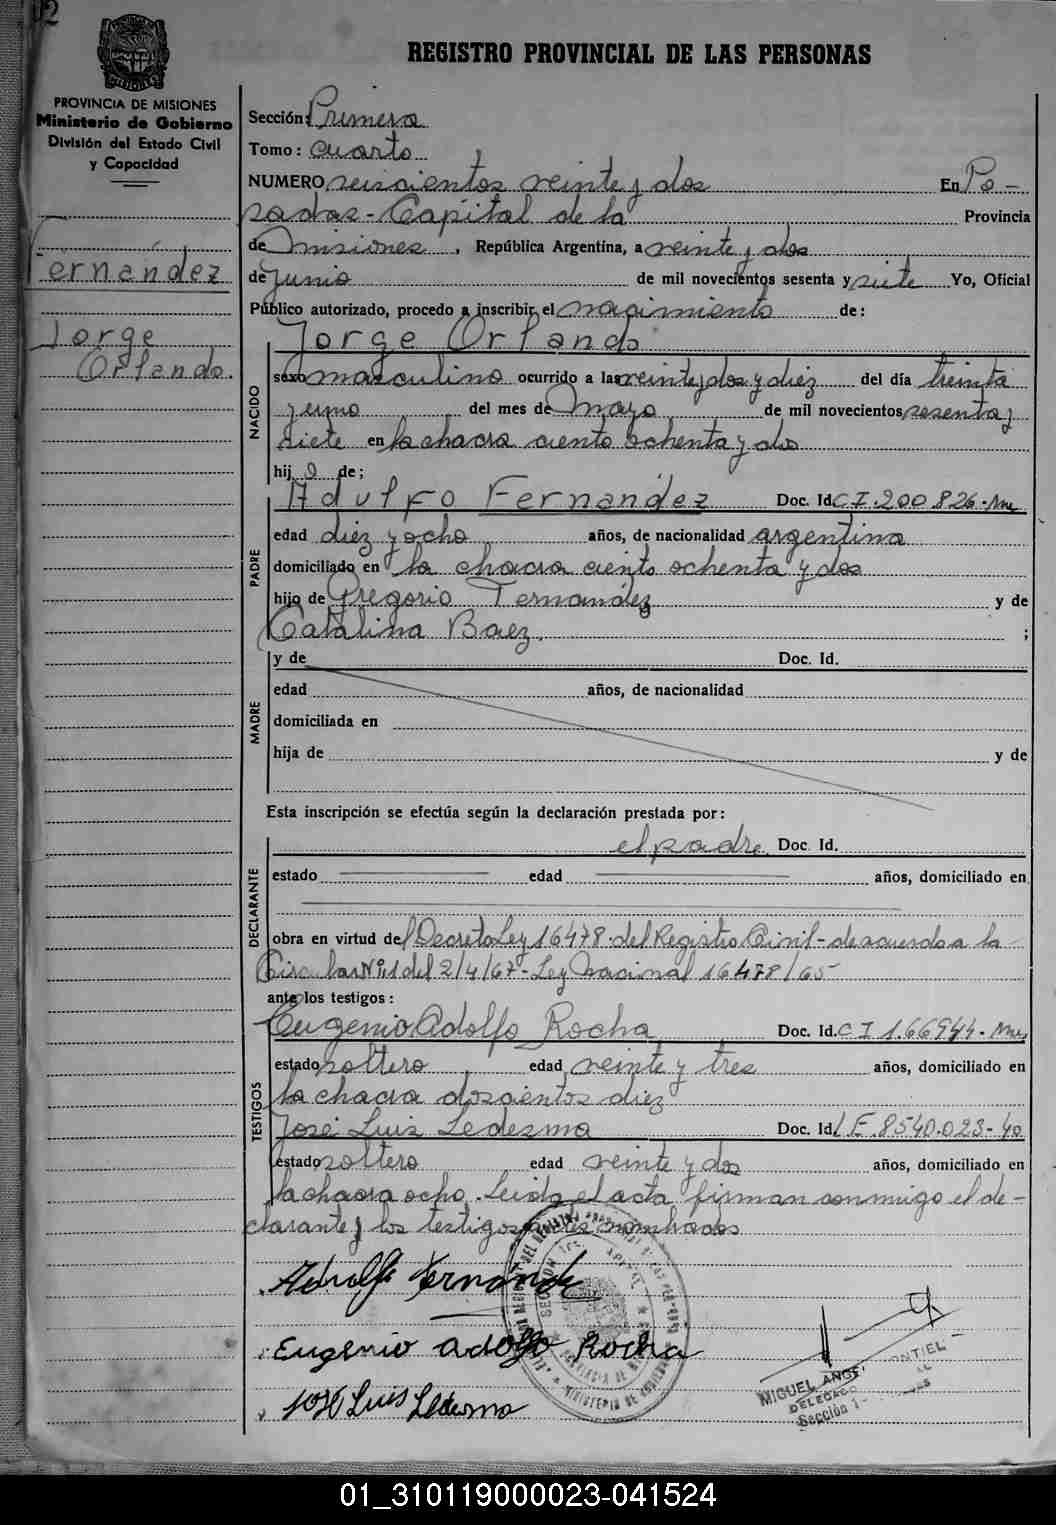 REGISTRO PROVINCIAL DE LAS PERSONAS
PROVINCIA DE MISIONES
Ministerio de Gobierno
División del Estado Civil
y Capacidad
Fernández
Jorge
Orlando.
Sección: Primera
Tomo: cuarto
NUMERO seiscientos veinte y dos En Po-
sadas-Capital de la Provincia
de Misiones, República Argentina, a veinte y dos
de junio de mil novecientos sesenta y siete Yo, Oficial
Público autorizado, procedo a inscribir el nacimiento de:
NACIDO
Jorge Orlando
sexo masculino ocurrido a las veinte y dos y diez del día treinta
y uno del mes de Mayo de mil novecientos sesenta y
siete en la chacra ciento ochenta y dos
hij o de;
PADRE
Adulfo Fernández Doc. Id. C I. 200.826-Mnes
edad diez y ocho años, de nacionalidad argentina
domiciliado en la chacra ciento ochenta y dos
hijo de Gregorio Fernández y de
Catalina Baez. ;
MADRE
y de Doc. Id.
edad años, de nacionalidad
domiciliada en
hija de y de
Esta inscripción se efectúa según la declaración prestada por:
DECLARANTE
el padre. Doc. Id.
estado edad años, domiciliado en
obra en virtud del Decreto Ley 16478 del Registro Civil-de acuerdo a la
Circular Nº11 del 2/4/67-Ley Nacional 16478/65
ante los testigos:
TESTIGOS
Eugenio Adolfo Rocha Doc. Id. C I 1.66944-Mnes
estado soltero edad veinte y tres años, domiciliado en
la chacra doscientos diez
José Luis Ledezma Doc. Id. L E. 8540.023-40
estado soltero edad veinte y dos años, domiciliado en
la chacra ocho. Leida el acta firman conmigo el de-
clarante y los testigos antes nombrados
Adolfo Fernande
Eugenio Adolfo Rocha
José Luis Ledesma
MIGUEL ANGEL
DELEGADO
Sección 1-
01_310119000023-041524